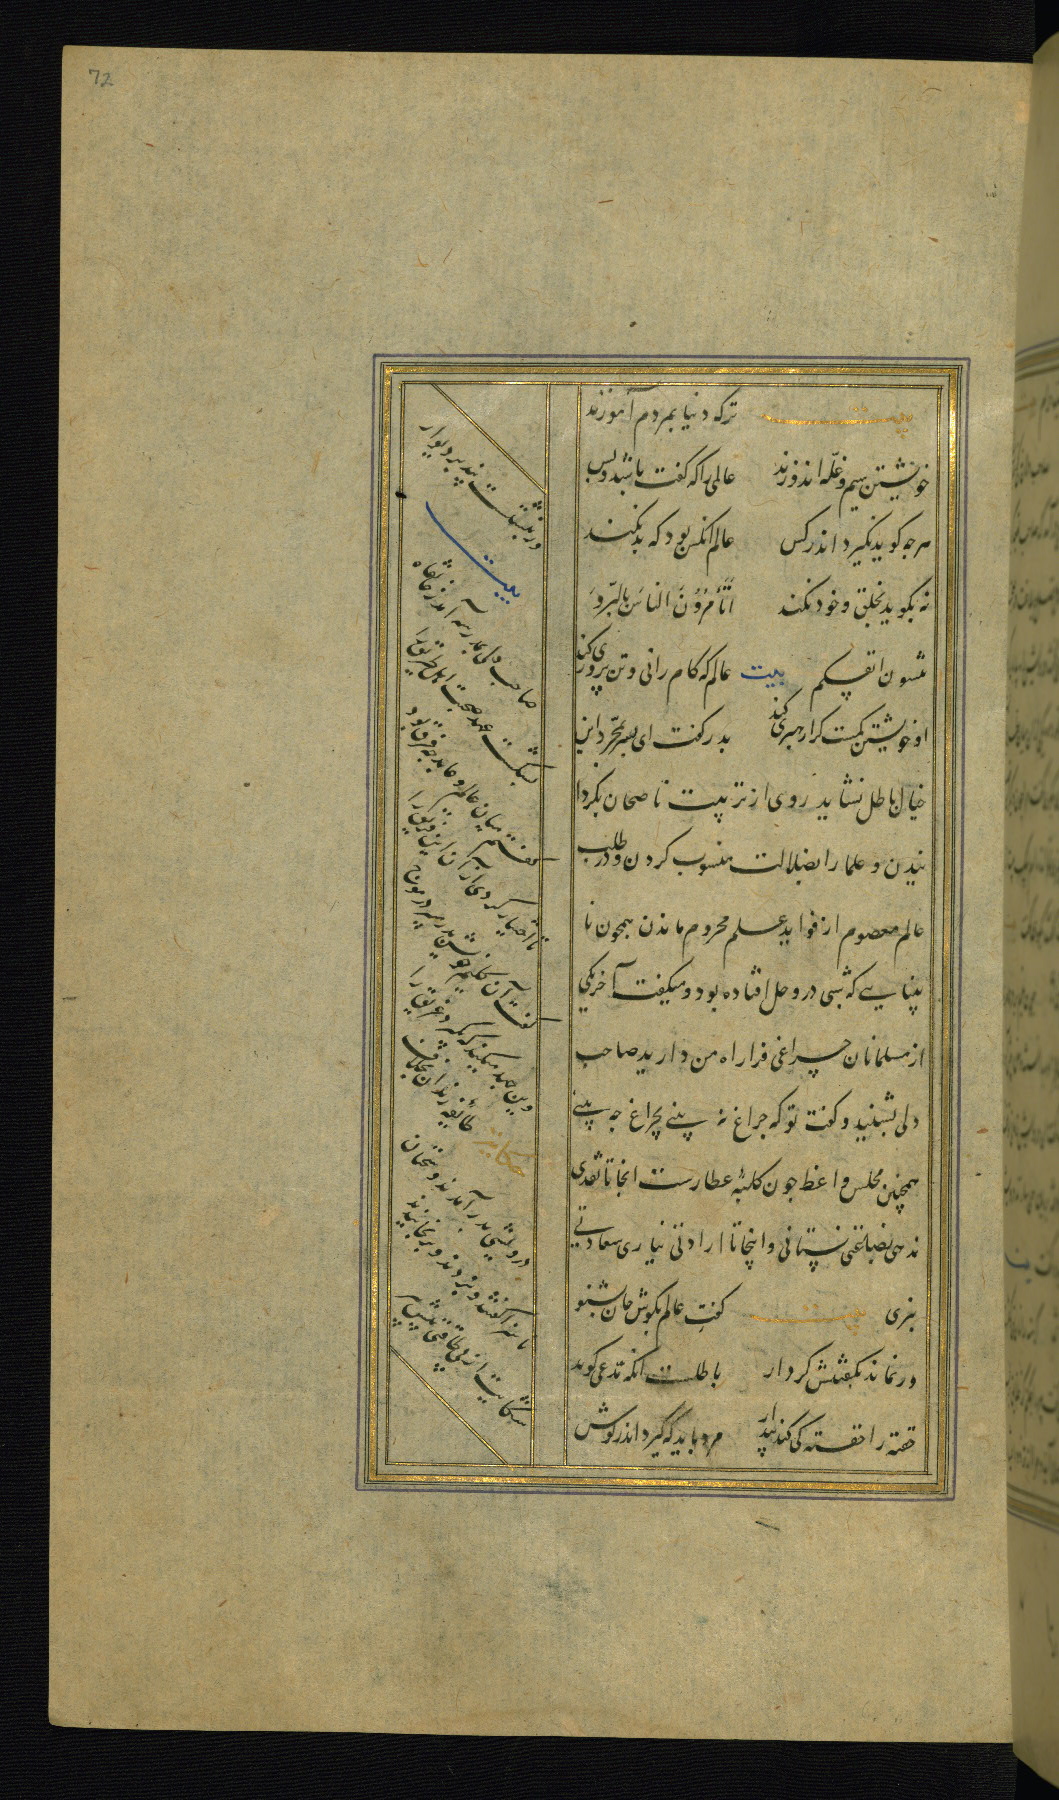 72
بیت ترکه دنیا بمردم آموزند
خویشتن سیم و غلّه اندوزند عالمی را که گفت باشد و بس
هرچه گوید نگیرد اندر کس عالم آنکس بود که بد نکند
نه بگوید بخلق و خود نکند اَتَأْمُرُوْنَ الناسَ بالبرّ وَ
تنسون انفسکم بیت عالم که کام رانی و تن پروری کند
او خویشتن گمست کرا رهبری کند پدر گفت ای پسر بمجرّد این
خیال باطل نشاید روی از تربیت ناصحان بگردا
نیدن و علما را بضلالت منسوب کردن و در طلب
عالم معصوم از فواید علم محروم ماندن همچون نا
بینایی که شبی در وحل افتاده بود و میگفت آخر یکی
از مسلمانان چراغی فرا راه من دارید صاحب
دلی بشنید و گفت تو که چراغ نه بینی بچراغ چه بینی
همچنین مجلس واعظ چون کلبهٔ عطارست انجا تا نقدی
ندهی بضاعتی نستانی و اینجا تا ارادتی نیاری سعادتی
نبری بیت گفت عالم بگوش جان بشنو
ور نماند بگفتنش کردار باطلست انکه مدعی گوید
خفته را خفته کی کند بیدار مرد باید که گیرد اندر گوش
ور نبشتست پند بر دیوار
بیت
صاحب دلی بمدرسه آمد ز خانقاه
بشکست عهد صحبت اهل طریق را
گفتم میان عالم و عابد چه فرق بود
تا اختیار کردی از آن این فریق را
گفت آن گلیم خویش بدر میبرد ز موج
وین جهد میکند که بگیرد غریق را
حکایت طایفه رندان بخلاف
درویشی بدر آمدند و سخنان
ناسزا گفتند و بزدند و برنجانیدند
شکایت از بی طاقتی پیش پیر